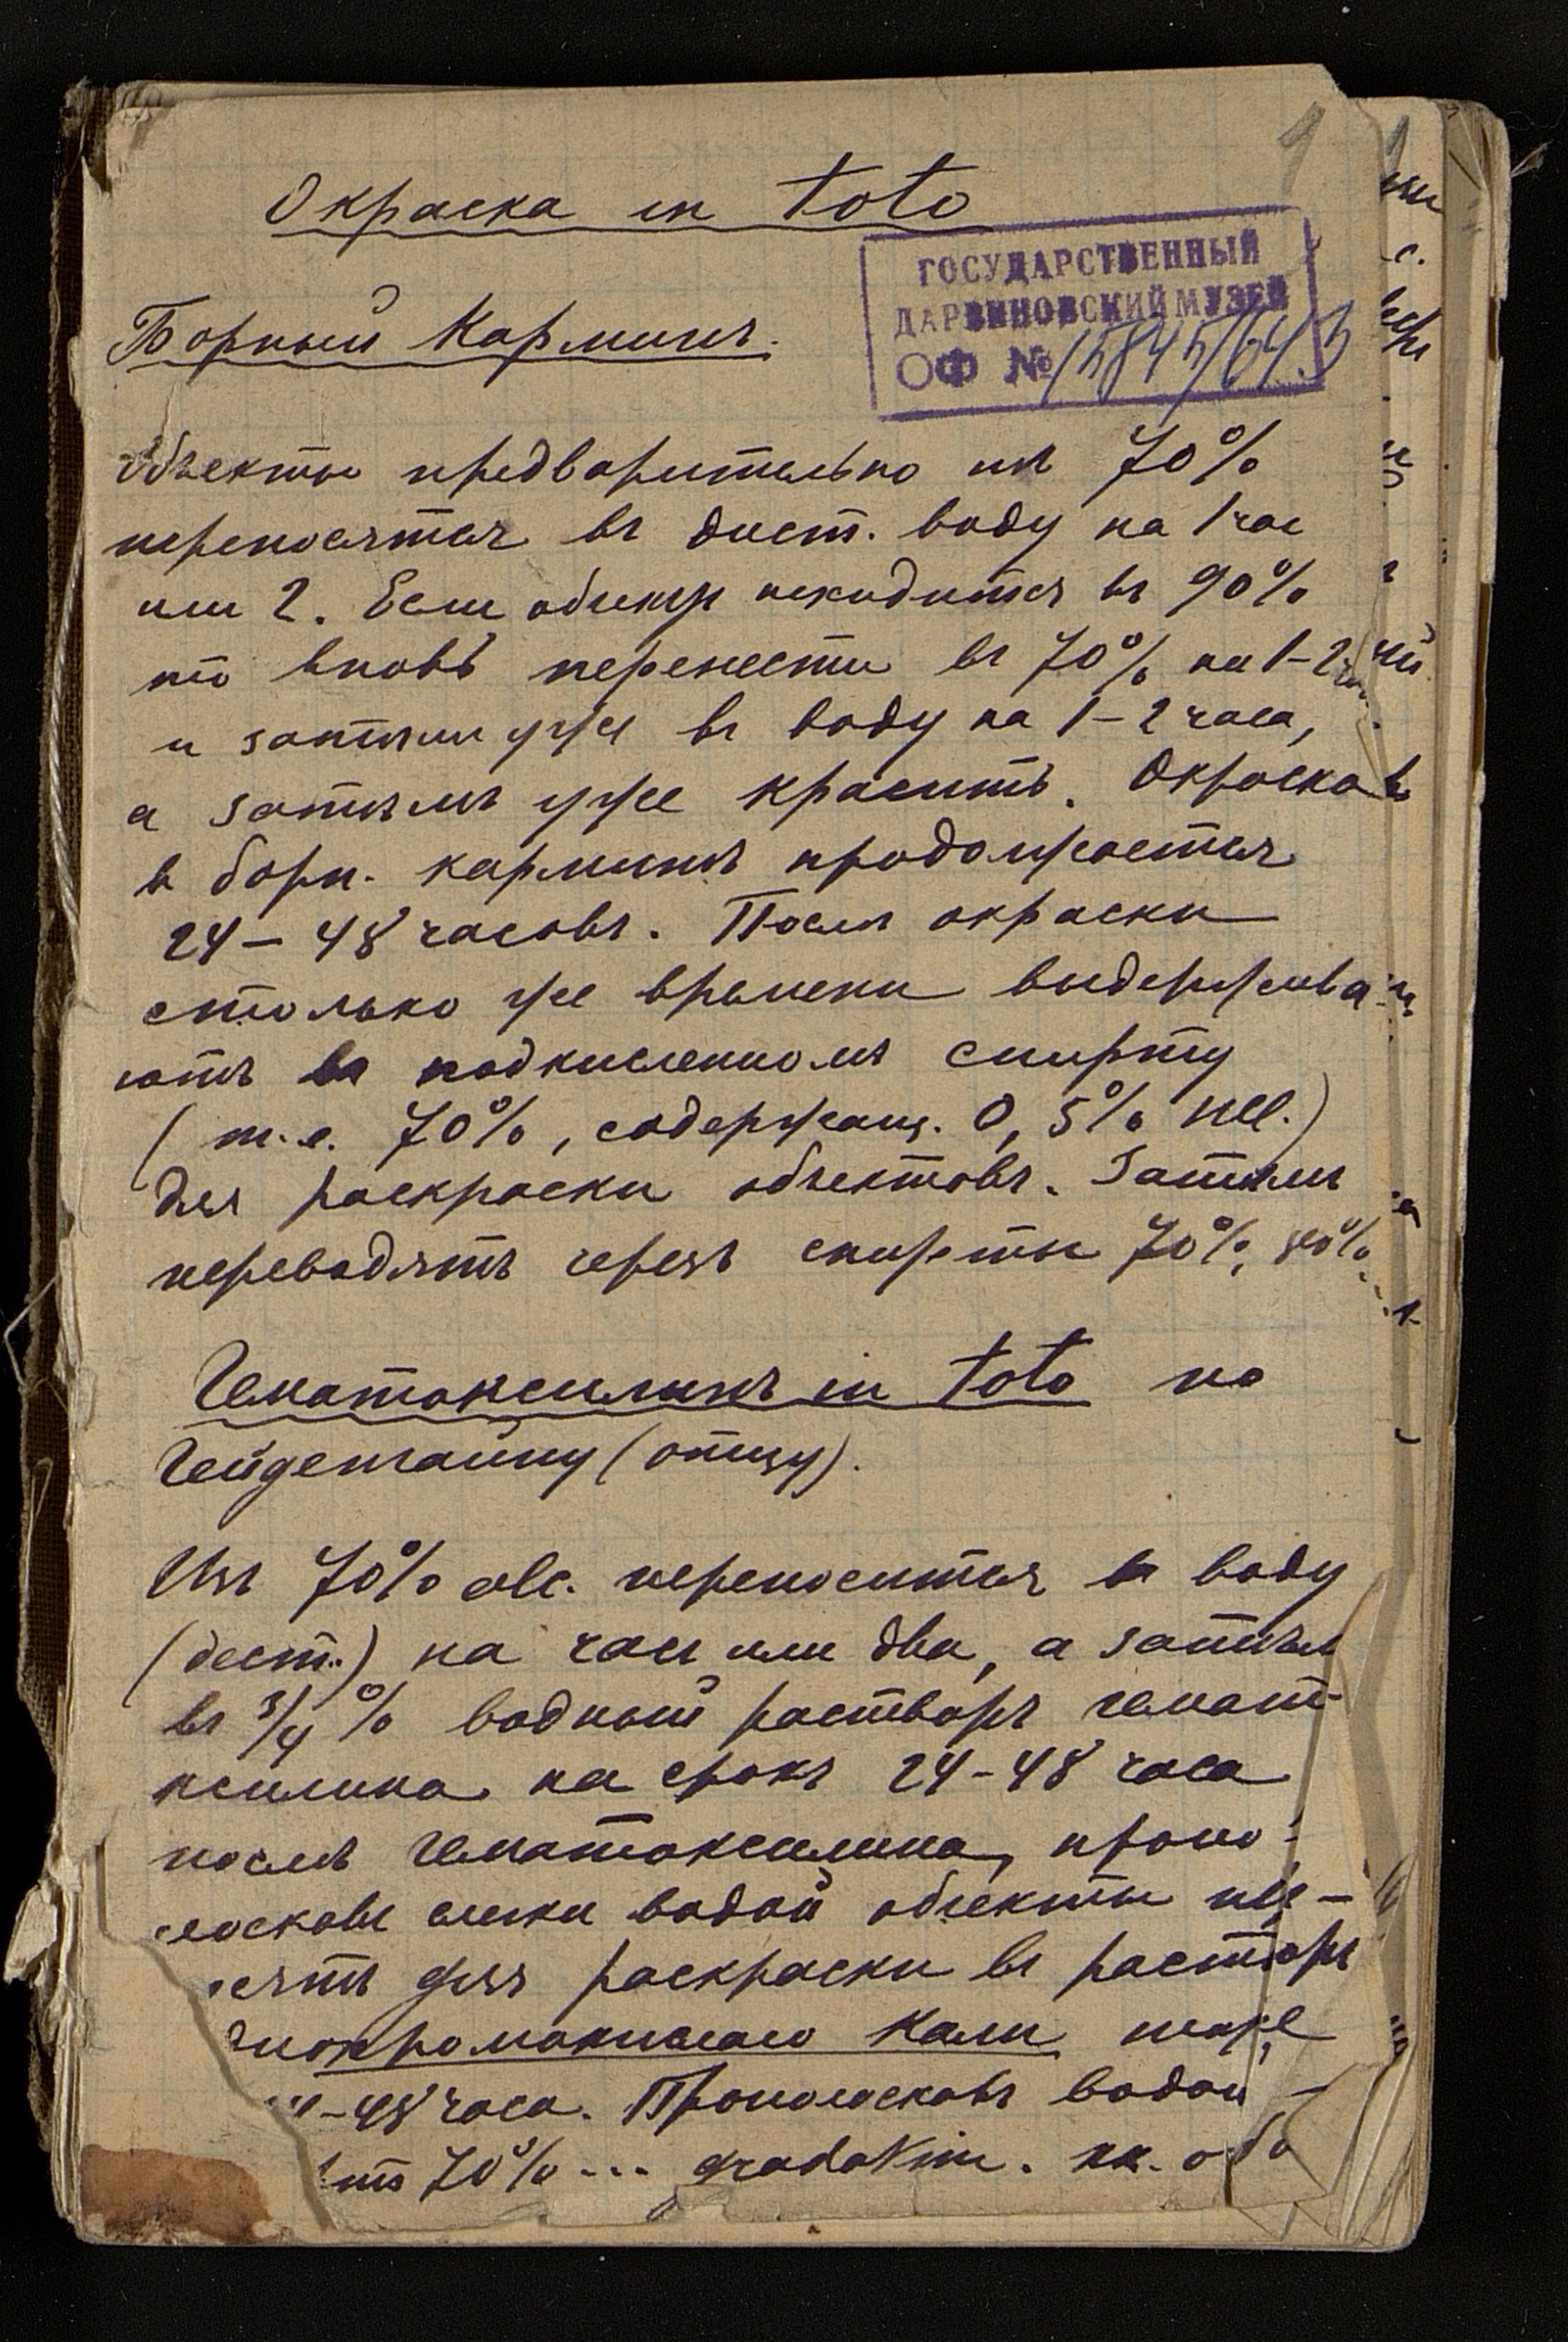 Окраска in toto
ГОСУДАРСТВЕННЫЙ
ДАРВИНОВСКИЙ МУЗЕЙ
ОФ № 15845/643
Борный Карминъ.
Объекты предварительно изъ 70%
переносятся въ дист. воду на 1 час
или 2. Если объектъ находится въ 90%
то вновь перенести въ 70% на 1-2 ча
и затѣмъ уже въ воду на 1-2 часа,
а затѣмъ уже красить. Окраска
в борн. карминѣ продолжается
24-48 часовъ. Послѣ окраски
столько же времени выдержива-
ютъ въ подкисленномъ спирту
(т.е. 70%, содержащ. 0,5% HCl.)
для раскраски объектовъ. Затѣмъ
переводятъ через спирты 70%, 80%
Гематоксилинъ in toto по
Гейденгайну (отцу).
Изъ 70% alc. переносится въ воду
(дест.) на часъ или два, а затѣмъ
въ 3/4% водный растворъ гемато-
ксилина на срокъ 24-48 часа
послѣ гематоксилина, пропо-
лоскавъ слегка водой объекты
для раскраски въ растворъ
хромокислаго Кали тоже
-48 часа. Прополоскавъ водой -
70% ... gradatim.